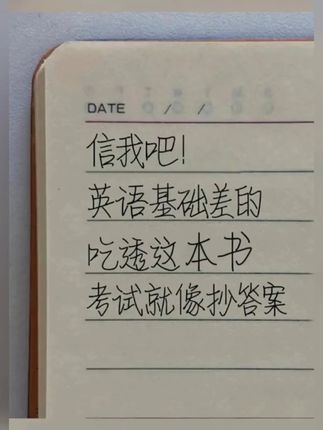 DATE / /
信我吧!
英语基础差的
吃透这本书
考试就像抄答案